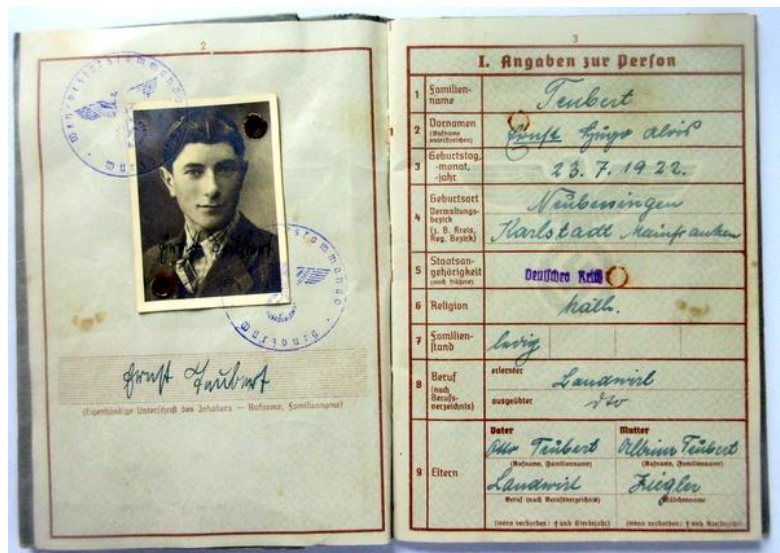 2
Wehrbezirkskommando
Ernst Teubert
Wehrbezirkskommando
Würzburg
Ernst Teubert
(Eigenhändige Unterschrift des Inhabers — Rufname, Familienname)
3
I. Angaben zur Person
1 Familien-name Teubert
2 Vornamen (Rufname unterstreichen) Ernst Hugo Alois
3 Geburtstag, -monat, -jahr 23. 7. 1922.
4 Geburtsort Verwaltungs-bezirk (z. B. Kreis, Reg. Bezirk)
Karlstadt Mainfranken
5 Staatsan-gehörigkeit (auch frühere) Deutsches Reich
6 Religion kath.
7 Familien-stand ledig
8 Beruf (nach Berufs-verzeichnis) erlernter Landwirt
ausgeübter dto
9 Eltern
Vater Mutter
Otto Teubert Teubert
(Rufname, Familienname) (Rufname, Familienname)
Landwirt Ziegler
Beruf (nach Berufsverzeichnis) Mädchenname
(wenn verstorben: † und Sterbejahr) (wenn verstorben: † und Sterbejahr)